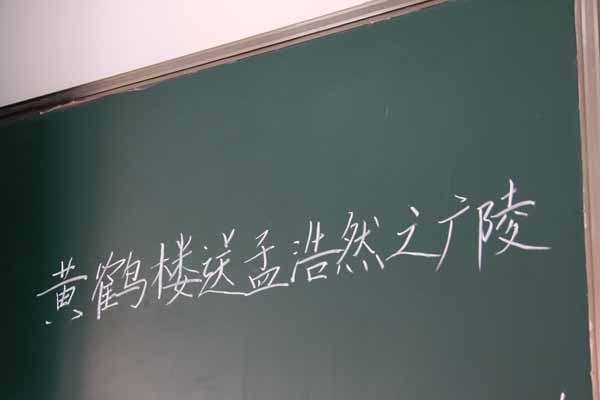 黄鹤楼送孟浩然之广陵